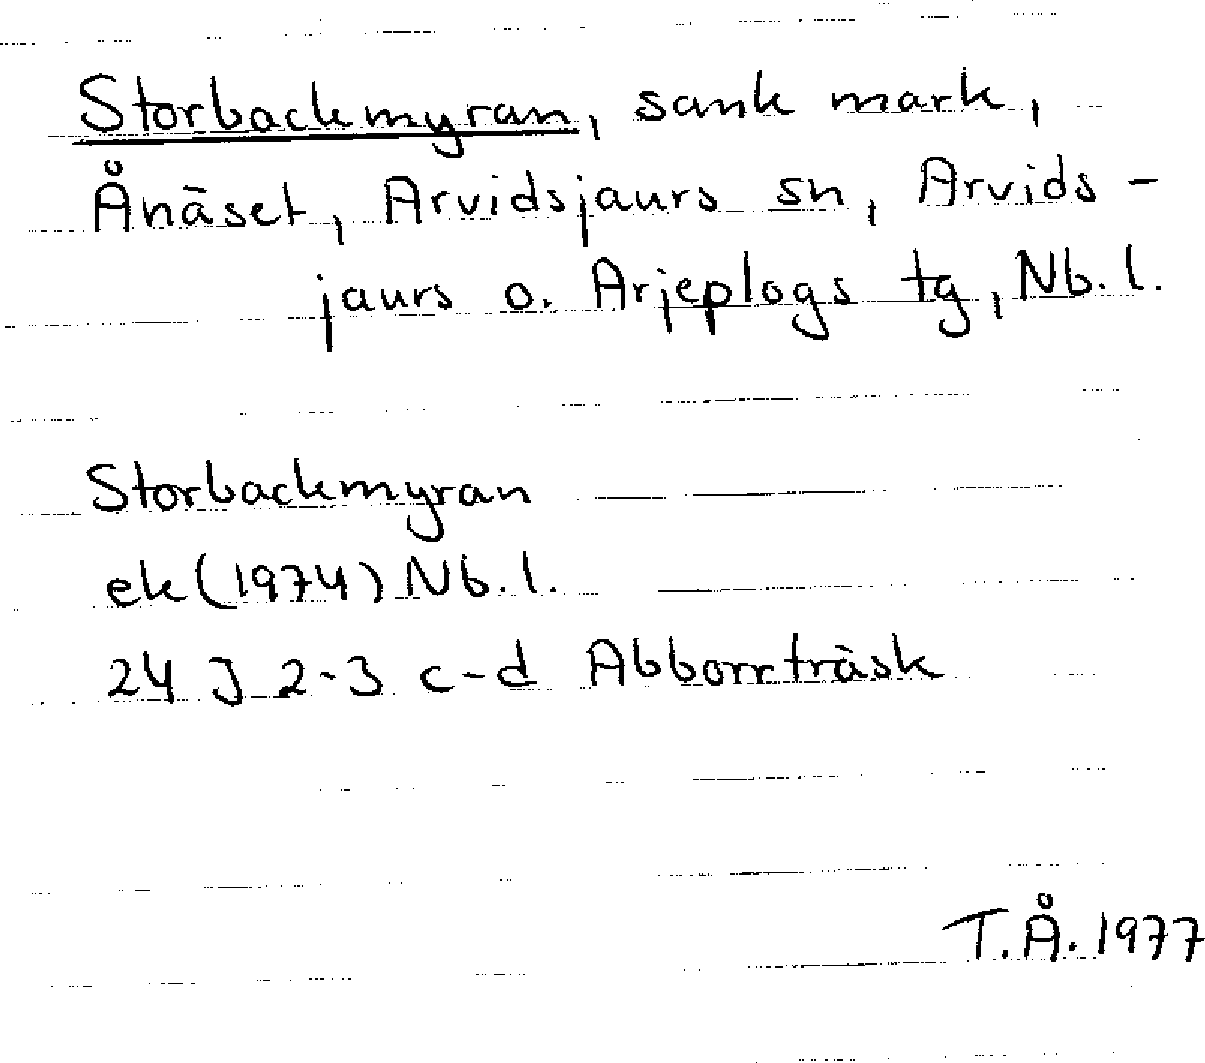 Storbackmyran, sank mark,
Ånäset, Arvidsjaurs sn, Arvids-
jaurs o. Arjeplogs tg, Nb.l.
Storbackmyran
ek (1974) Nb.l.
24 J 2-3 c-d Abborrträsk
T.Å. 1977